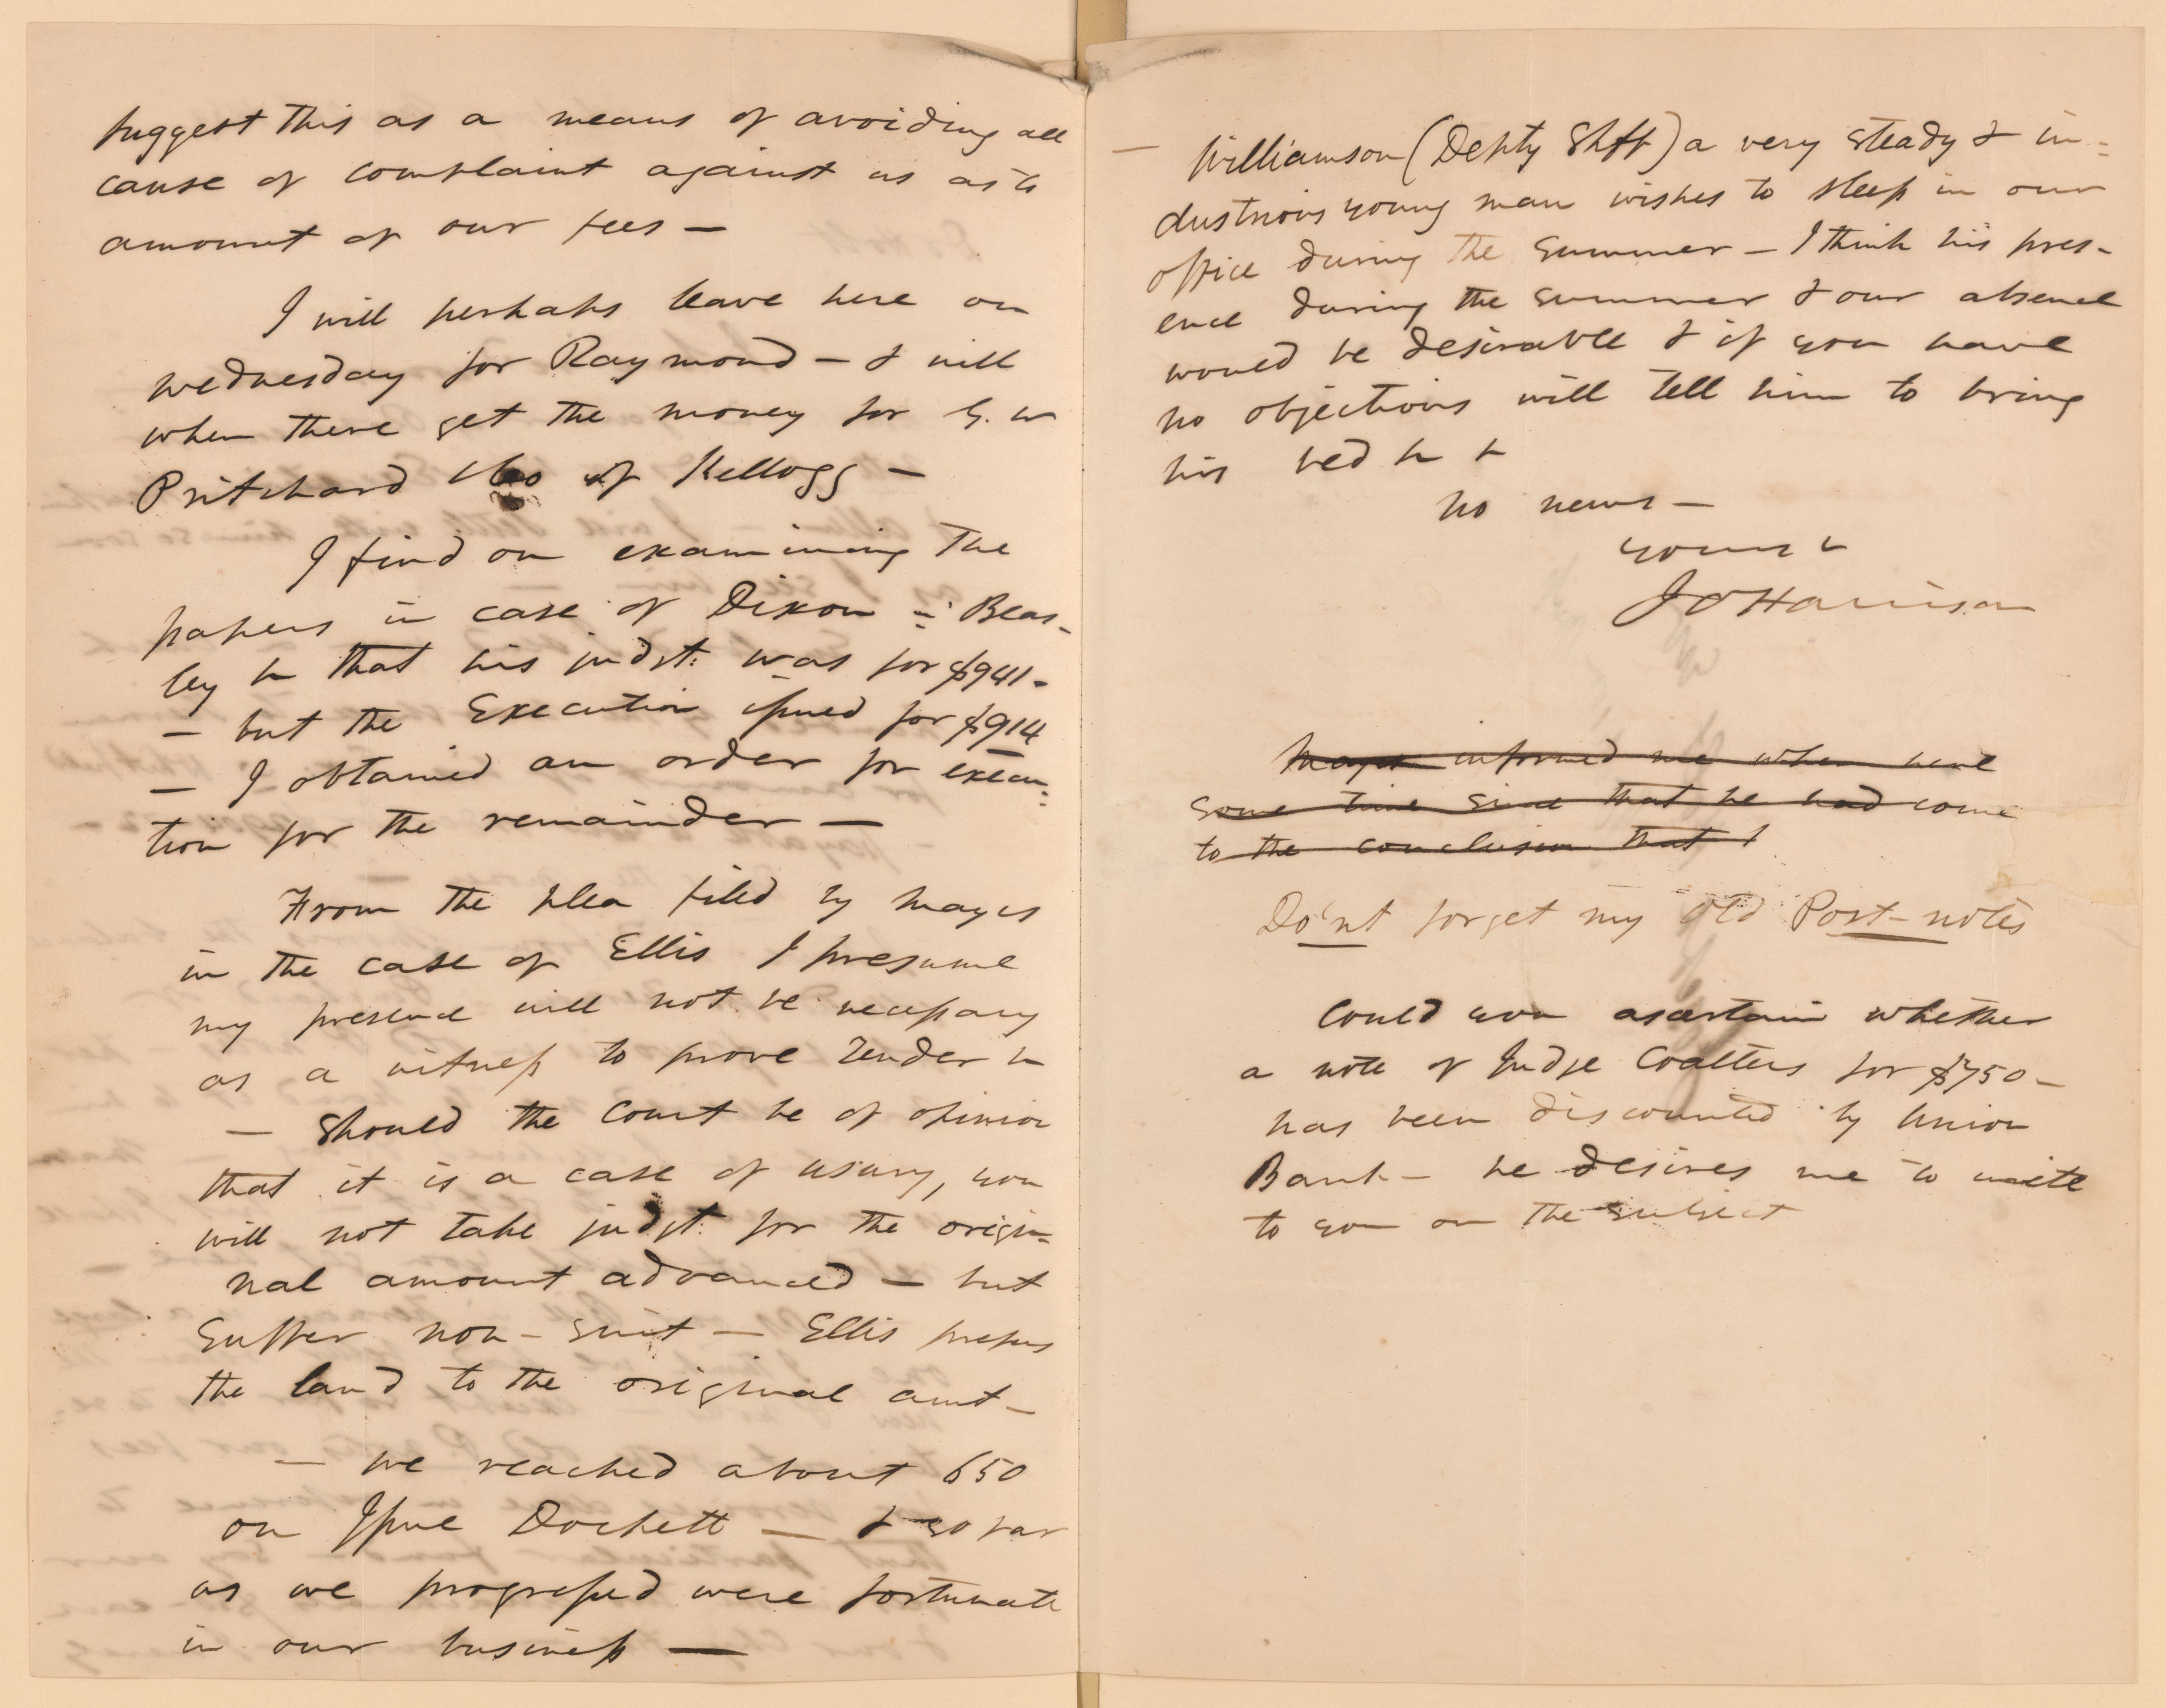 suggest this as a means of avoiding all
cause of complaint against us as to
amount of our fees —
I will perhaps leave here on
Wednesday for Raymond — & will
when there get the money for G. W
Pritchard of Kellogg —
I find on examining the
papers in case of Dixon = Beas-
ley &c that his judgt: was for $941-
— but the Execution issued for $914
— I obtained an order for execu:
tion for the remainder —
From the plea filed by Mayes
in the case of Ellis I presume
my presence will not be necessary
as a witness to prove tender &c
— Should the Court be of opinion
that it is a case of usury, you
will not take judgt: for the origi-
nal amount advanced — but
suffer non-suit — Ellis prefers
the land to the original amt —
— We reached about 650
on Issue Dockett — & so far
as we progressed were fortunate
in our business —
— Williamson (Depty Shff) a very steady & in=
dustrious young man wishes to sleep in our
office during the Summer — I think his pres-
ence during the summer & our absence
would be desirable & if you have
no objections will tell him to bring
his bed &c &c
No news —
Yours &c
J C Harrison
Mayes informed me when here
some time since that he had come
to the conclusion that I
Do'nt forget my old Post-notes
Could you ascertain whether
a note of Judge Coalters for $750-
has been discounted by Union
Bank — he desires me to write
to you on the subject